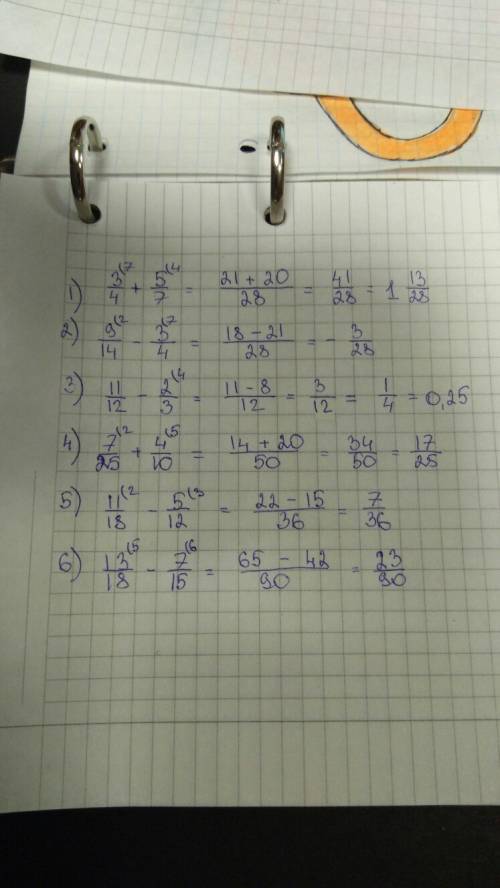 1) 3(7/4 + 5(4/7 = 21 + 20/28 = 41/28 = 1 13/28
2) 9(2/14 - 3(7/4 = 18 - 21/28 = - 3/28
3) 11/12 - 2(4/3 = 11 - 8/12 = 3/12 = 1/4 = 0,25
4) 7(2/25 + 4(5/10 = 14 + 20/50 = 34/50 = 17/25
5) 11(2/18 - 5(3/12 = 22 - 15/36 = 7/36
6) 13(5/18 - 7(6/15 = 65 - 42/90 = 23/90